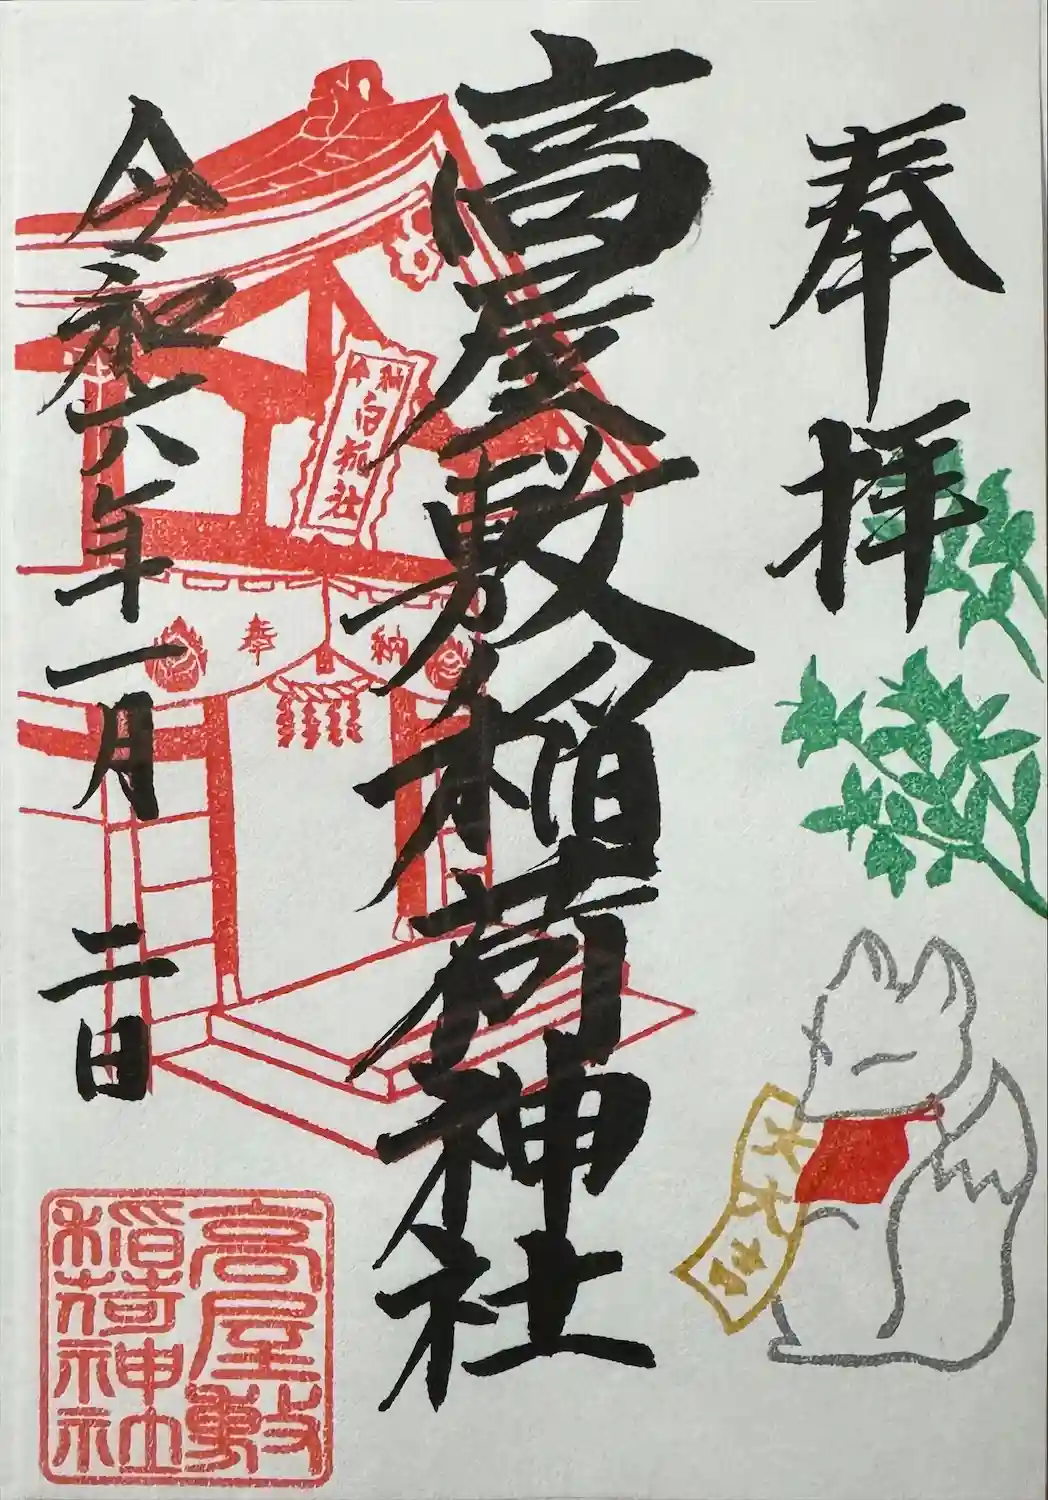 奉拝
高屋敷稲荷神社
令和六年一月二日
白狐社
奉納
大大吉
高屋敷
稲荷神社